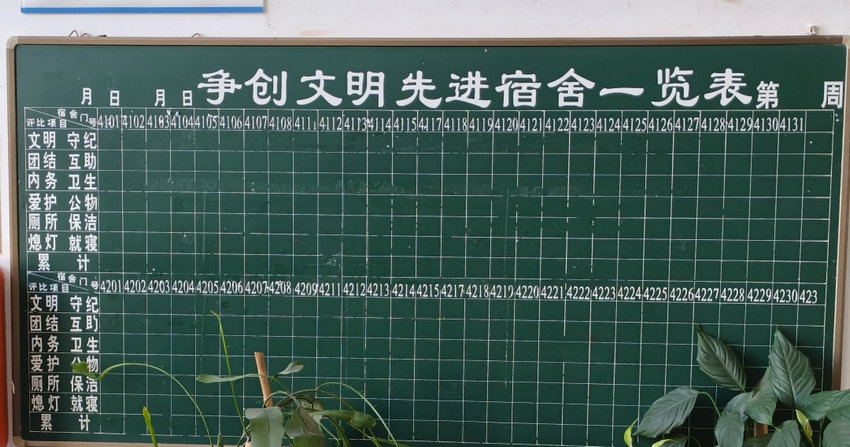 月 日 月 日 争创文明先进宿舍一览表 第 周
宿舍门号
评比项目 4101 4102 4103 4104 4105 4106 4107 4108 4111 4112 4113 4114 4115 4117 4118 4119 4120 4121 4122 4123 4124 4125 4126 4127 4128 4129 4130 4131
文明 守纪
团结 互助
内务 卫生
爱护 公物
厕所 保洁
熄灯 就寝
累 计
宿舍门号
评比项目 4201 4202 4203 4204 4205 4206 4207 4208 4209 4211 4212 4213 4214 4215 4217 4218 4219 4220 4221 4222 4223 4224 4225 4226 4227 4228 4229 4230 423
文明 守纪
团结 互助
内务 卫生
爱护 公物
厕所 保洁
熄灯 就寝
累 计